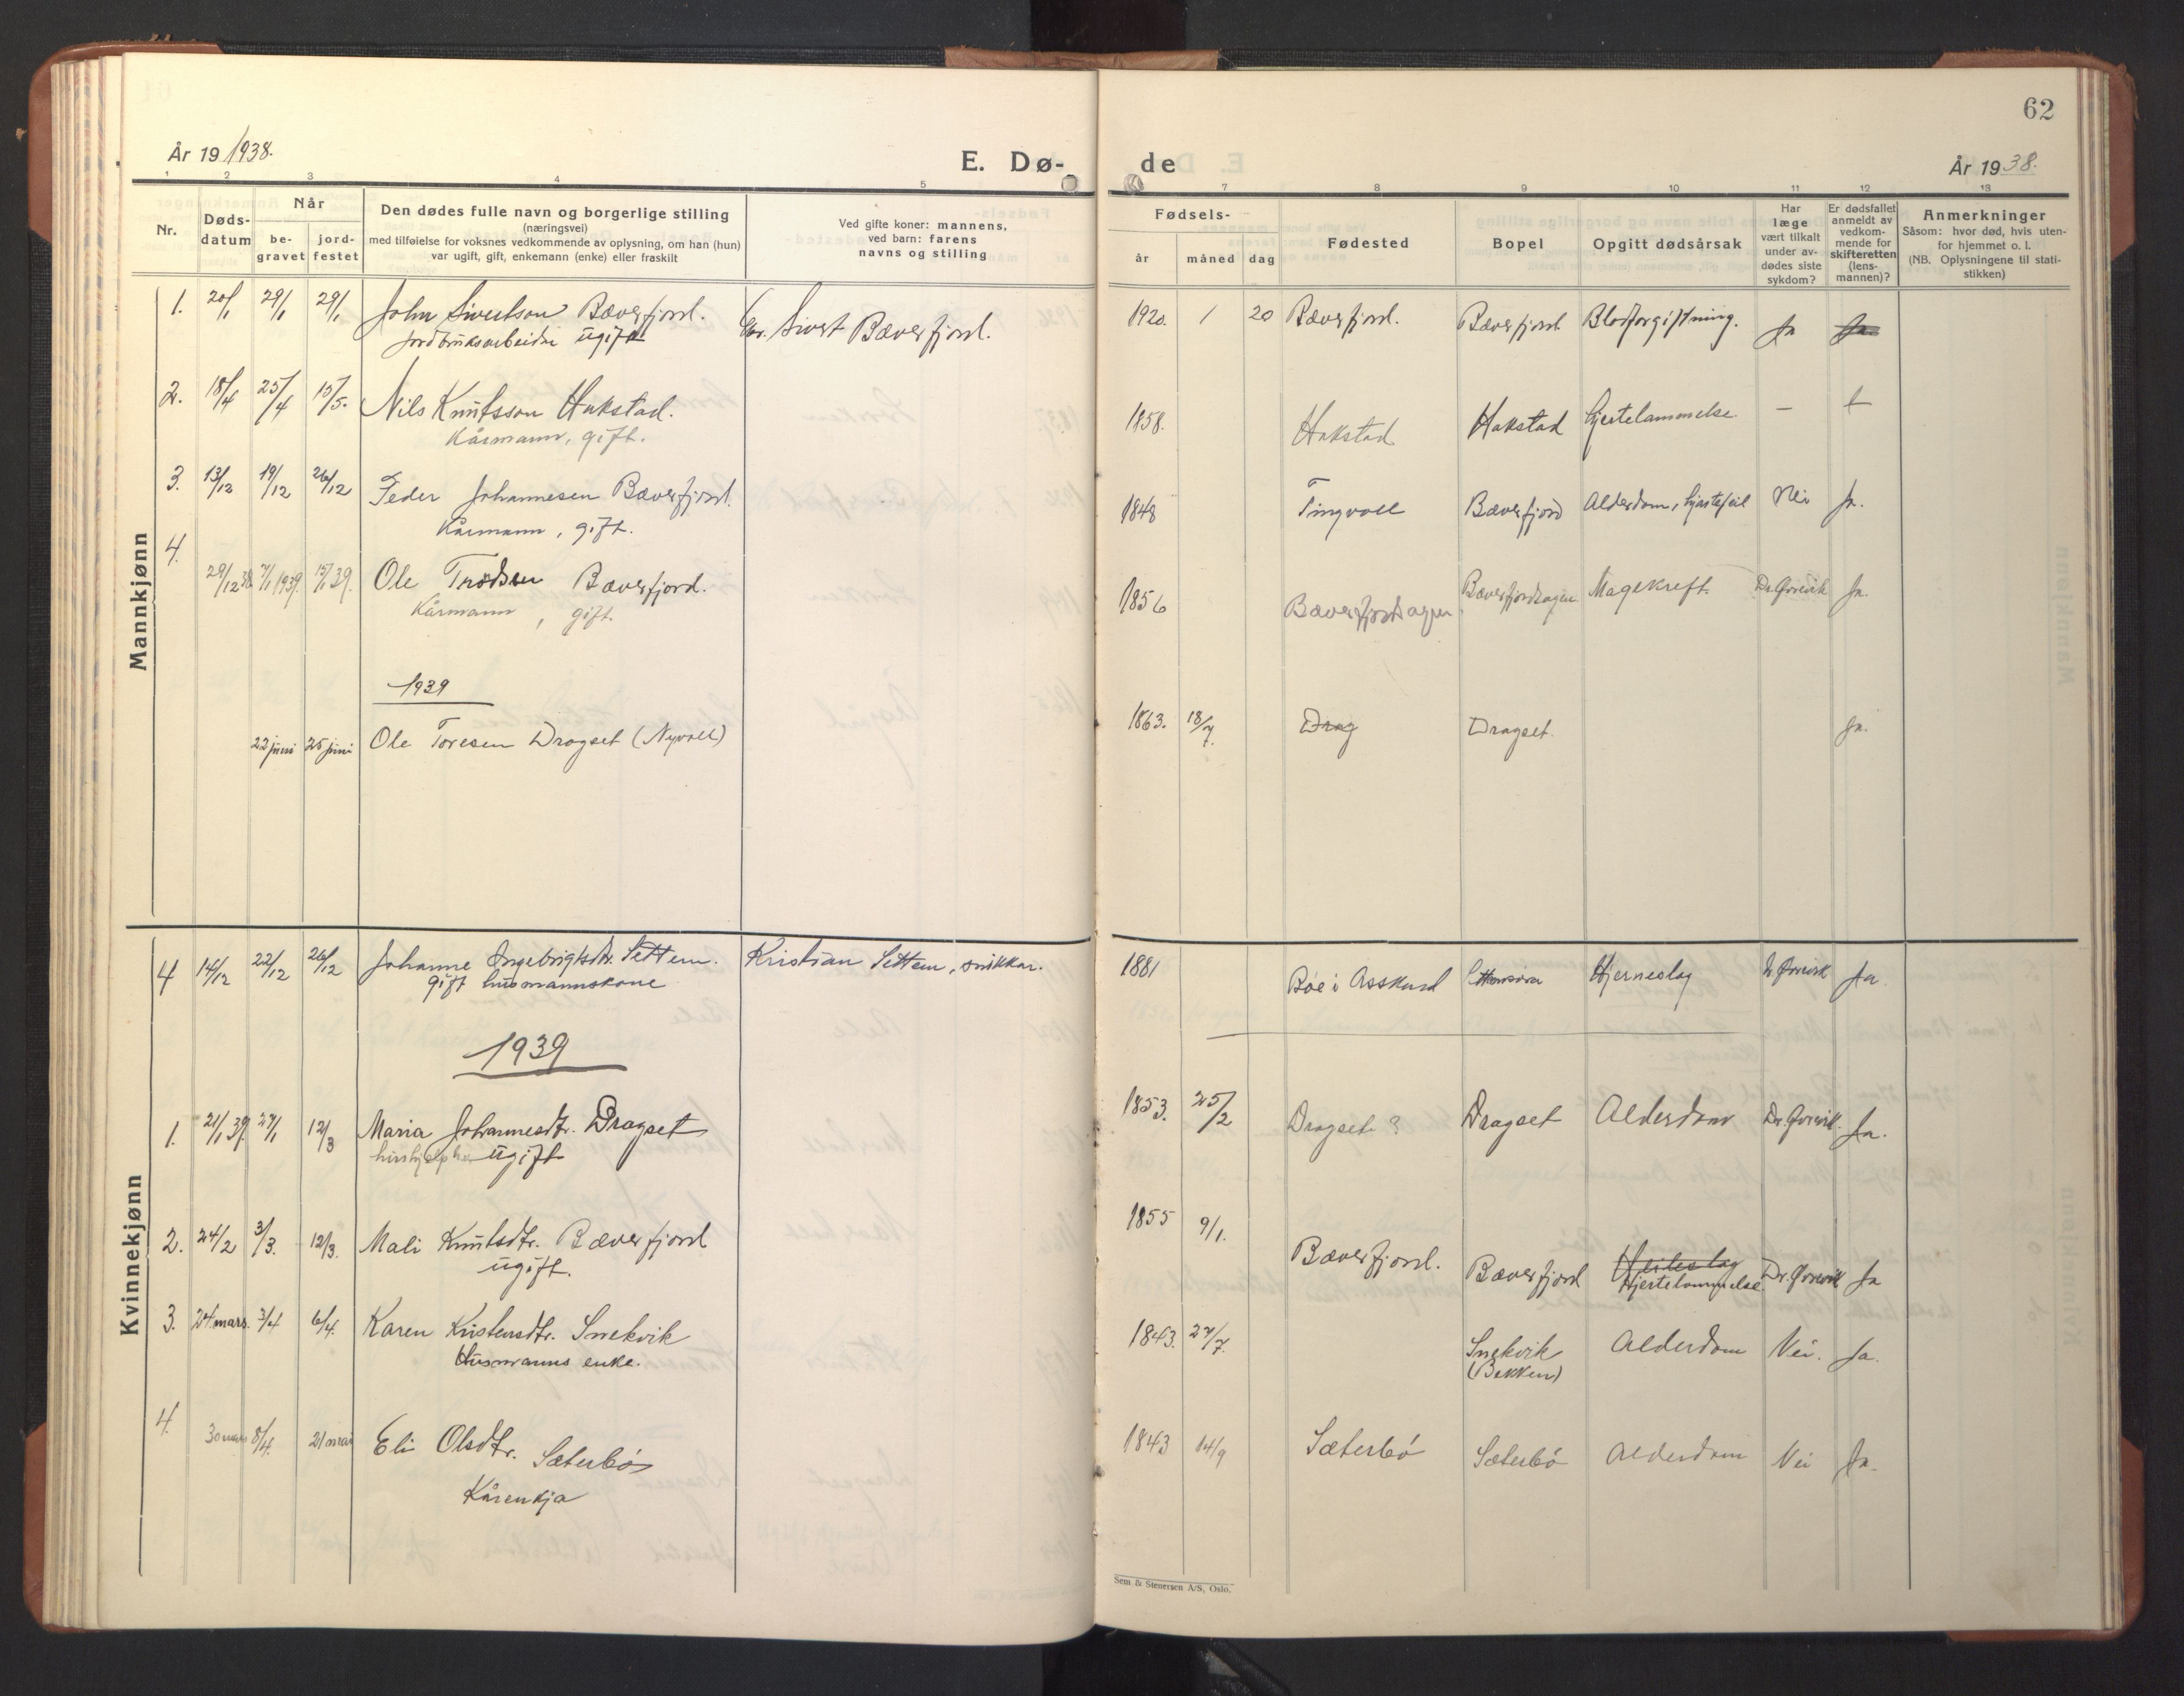 62
År 19 1938.
E. Dø-
de
År 19 38.
1 2 3 4 5 7 8 9 10 11 12 13
Nr.
Døds-
datum
Når
be-
gravet
jord-
festet
Den dødes fulle navn og borgerlige stilling
(næringsvei)
med tilføielse for voksnes vedkommende av oplysning, om han (hun)
var ugift, gift, enkemann (enke) eller fraskilt
Ved gifte koner: mannens,
ved barn: farens
navns og stilling
Fødsels-
år
måned
dag
Fødested
Bopel
Opgitt dødsårsak
Har
læge
vært tilkalt
under av-
dødes siste
sykdom?
Er dødsfallet
anmeldt av
vedkom-
mende for
skifteretten
(lens-
mannen)?
Anmerkninger
Såsom: hvor død, hvis uten-
for hjemmet o. l.
(NB. Oplysningene til stati-
stikken)
Mannkjønn
1. 20/1 29/1 29/1 John Sivertson Bæverfjord. Sivert Bæverfjord. 1920. 1 20 Bæverfjord. Bæverfjord Blodforgiftning. Ja Ja
Jordbruksarbeider ugift
2. 18/4 25/4 15/5. Nils Knutsson Hakstad. 1858. Hakstad Hakstad Hjertelammelse. —
Kårmann, gift.
3. 13/12 19/12 26/12 Peder Johannesen Bæverfjord. 1848 Tingvoll Bæverfjord Alderdom, hjertefeil Nei Ja.
Kårmann, gift.
4. 29/12 38 7/1 1939. 15/1 39. Ole Trødsen Bæverfjord. 1856 Bæverfjordsagen Bæverfjordsagen Magekreft. Dr. Qvreik Ja.
Kårmann, gift.
1939
22 juni 25 juni Ole Toresen Dragset (Nyvoll) 1863. 18/7. Drag Dragset. ja.
Kvinnekjønn
4 14/12 22/12 26/12 Johanne Ingebrigtsdtr. Settem. Kristian Settem, snikkar. 1881 Bøe i Asskard Hjerneslag Ja
gift husmannskone
1939
1. 21/1 39. 27/1 12/3 Maria Johannesdtr. Dragset 1853. 25/2 Dragset? Dragset Alderdom Ja.
hushjelp ugift
2. 24/2 3/3. 12/3. Mali Knutsdtr. Bæverfjord 1855 9/1. Bæverfjord. Bæverfjord Hjerteslag Ja
ugift. Hjertelammelse
3. 24. mars. 3/4 6/4. Karen Kristensdtr. Snekvik 1843. 27/7. Snekvik Alderdom Nei. Ja.
Husmanns enke. (Bekken)
4. 30 mars 8/4. 21 mai Eli Olsdtr. Sæterbø 1843 14/9 Sæterbø Sæterbø Alderdom Nei Ja.
Kårenkja
Sem & Stenersen A/S, Oslo.